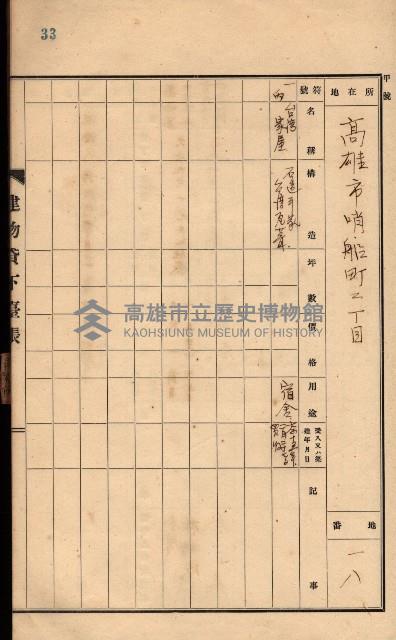 33
甲號
所在地
高雄市哨船町二丁目
地番
一八
符號
名稱
構造
坪數
價格
用途
受入又ハ建造年月日
記事
一
台灣家屋
石造平家
台湾瓦葺
宿舍
建物貸下臺帳
高雄市立歷史博物館
KAOHSIUNG MUSEUM OF HISTORY